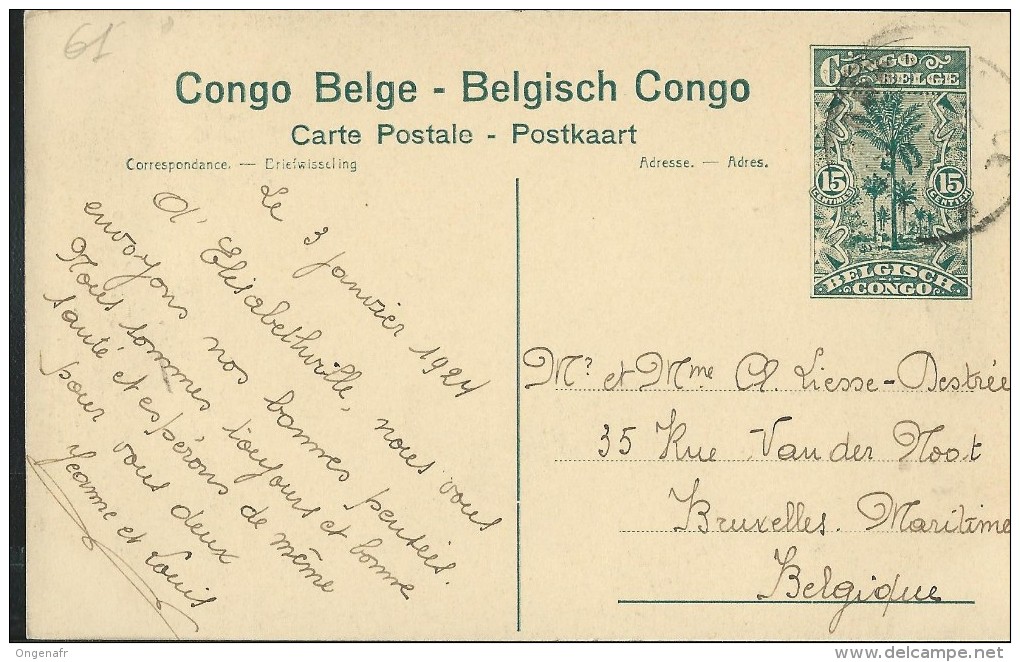 61
Congo Belge - Belgisch Congo
Carte Postale - Postkaart
Correspondance. — Briefwisseling
Adresse. — Adres.
CONGO
BELGE
15
CENTIMES
15
CENTIEM
BELGISCH
CONGO
Le 3 janvier 1924
D' Elisabethville, nous vous
envoyons nos bonnes pensées.
Nous sommes toujours et bonne
santé et espérons de même
pour vous deux
Jeanne et Louis
Mr et Mme Cl. Liesse-Destrée
35 Rue Van der Noot
Bruxelles. Maritime
Belgique
Ongenafr
delcampe.net